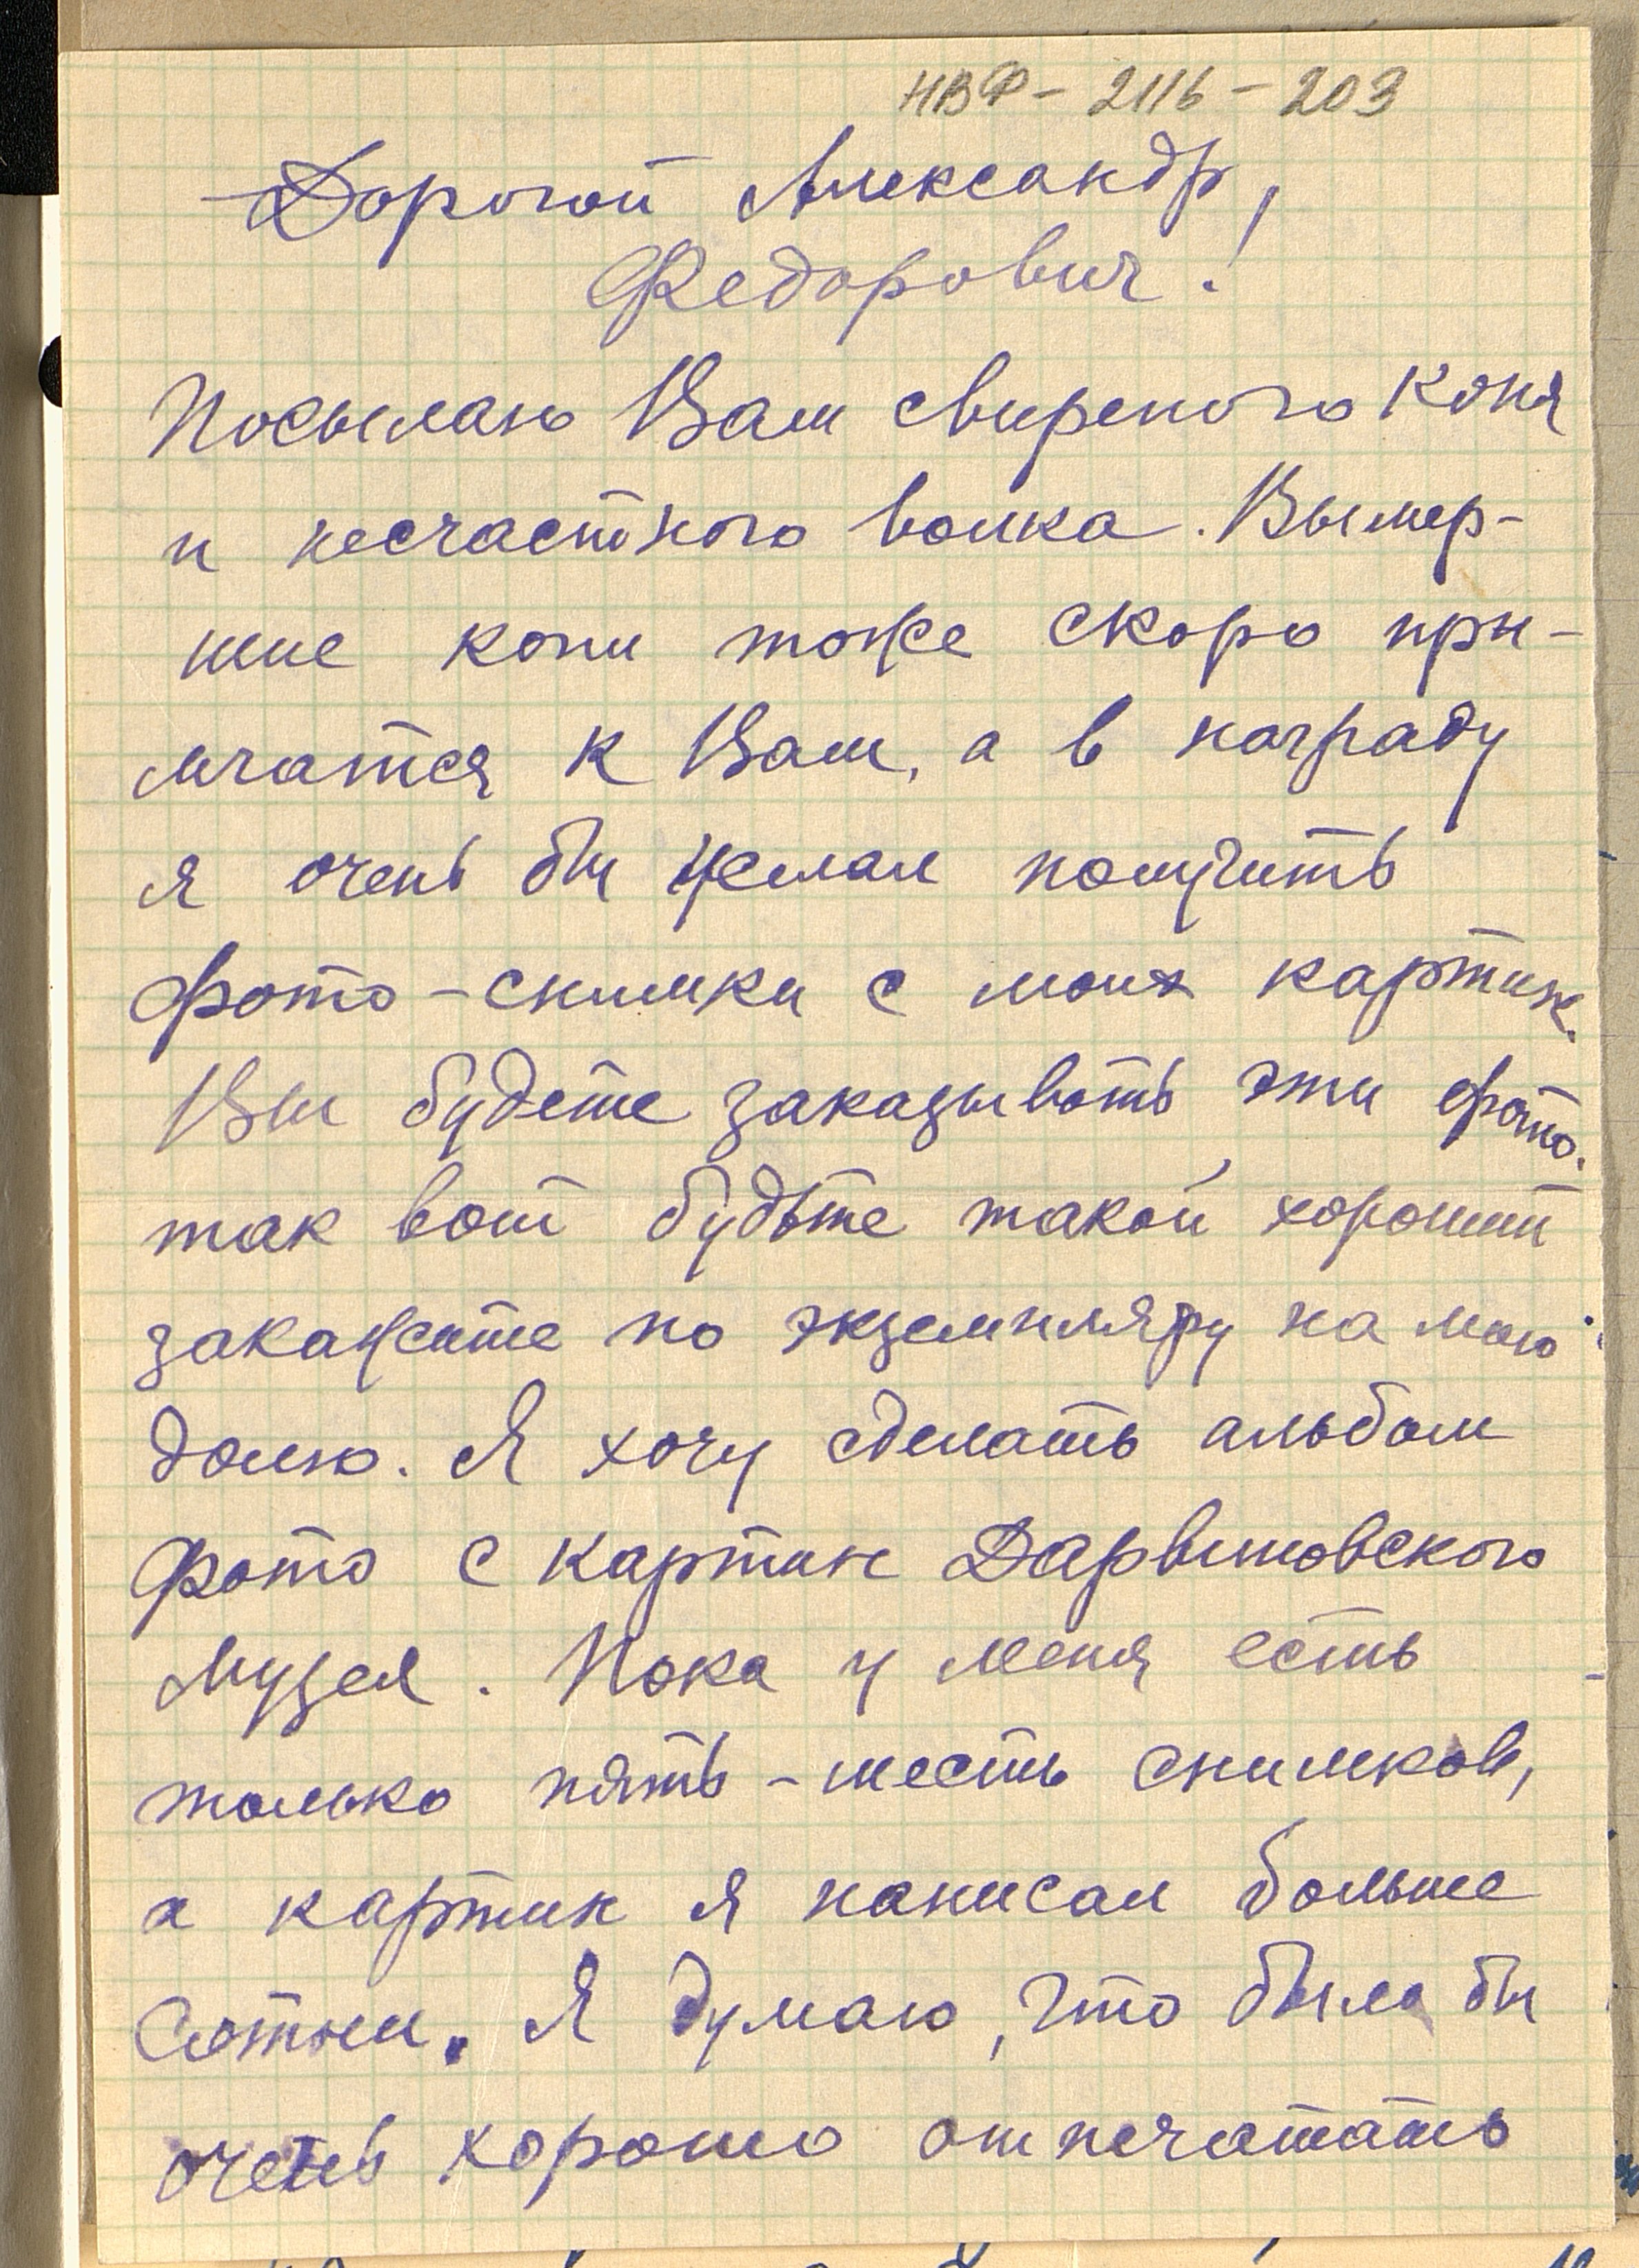 НВФ – 2116 – 203
Дорогой Александр,
Федорович!
Посылаю Вам свирепого коня
и несчастного волка. Вымер-
шие кони тоже скоро при-
мчатся к Вам, а в награду
я очень бы желал получить
фото-снимки с моих картин.
Вы будете заказывать эти фото.
так вот будьте такой хороший
закажите по экземпляру на мою
долю. Я хочу сделать альбом
фото с картин Дарвиновского
Музея. Пока у меня есть
только пять-шесть снимков,
а картин я написал больше
сотни. Я думаю, что было бы
очень хорошо отпечатать